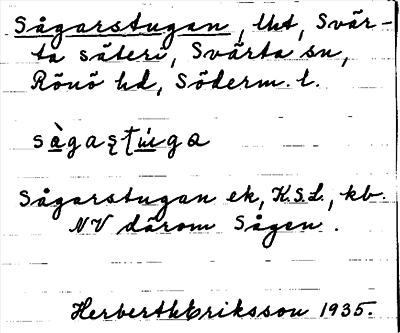 Sågarstugan, lht, Svär-
ta säteri, Svärta sn,
Rönö hd, Söderm. l.
sàgaʂt̨ùga
Sågarstugan ek, K.S.L., kb.
NV därom Sågen.
Herbert Eriksson 1935.